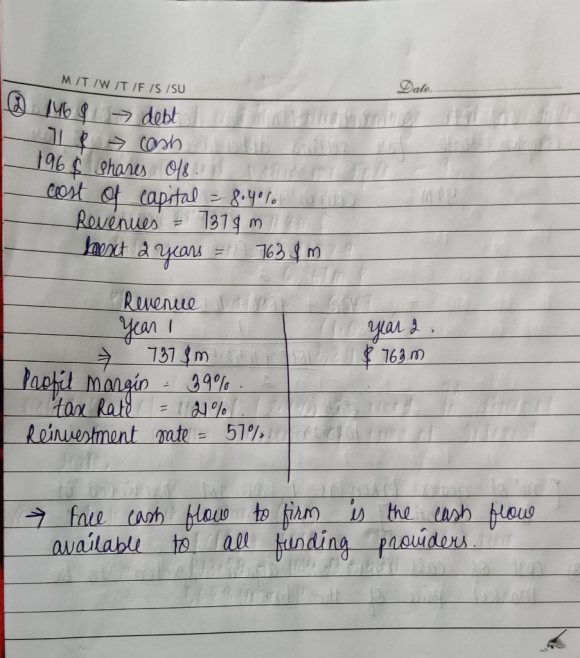 M / T / W / T / F / S / SU
Date
② 146 $ → debt
71 $ → cash
196 $ shares o/s.
cost of capital = 8.4%
Revenues = 737 $ m
Next 2 years = 763 $ m
Revenue
Year 1
year 2.
⇒ 737 $m
$ 763 m
Profit Margin = 39%.
tax Rate = 21%.
Reinvestment rate = 57%.
→ Free cash flow to firm is the cash flow
available to all funding providers.